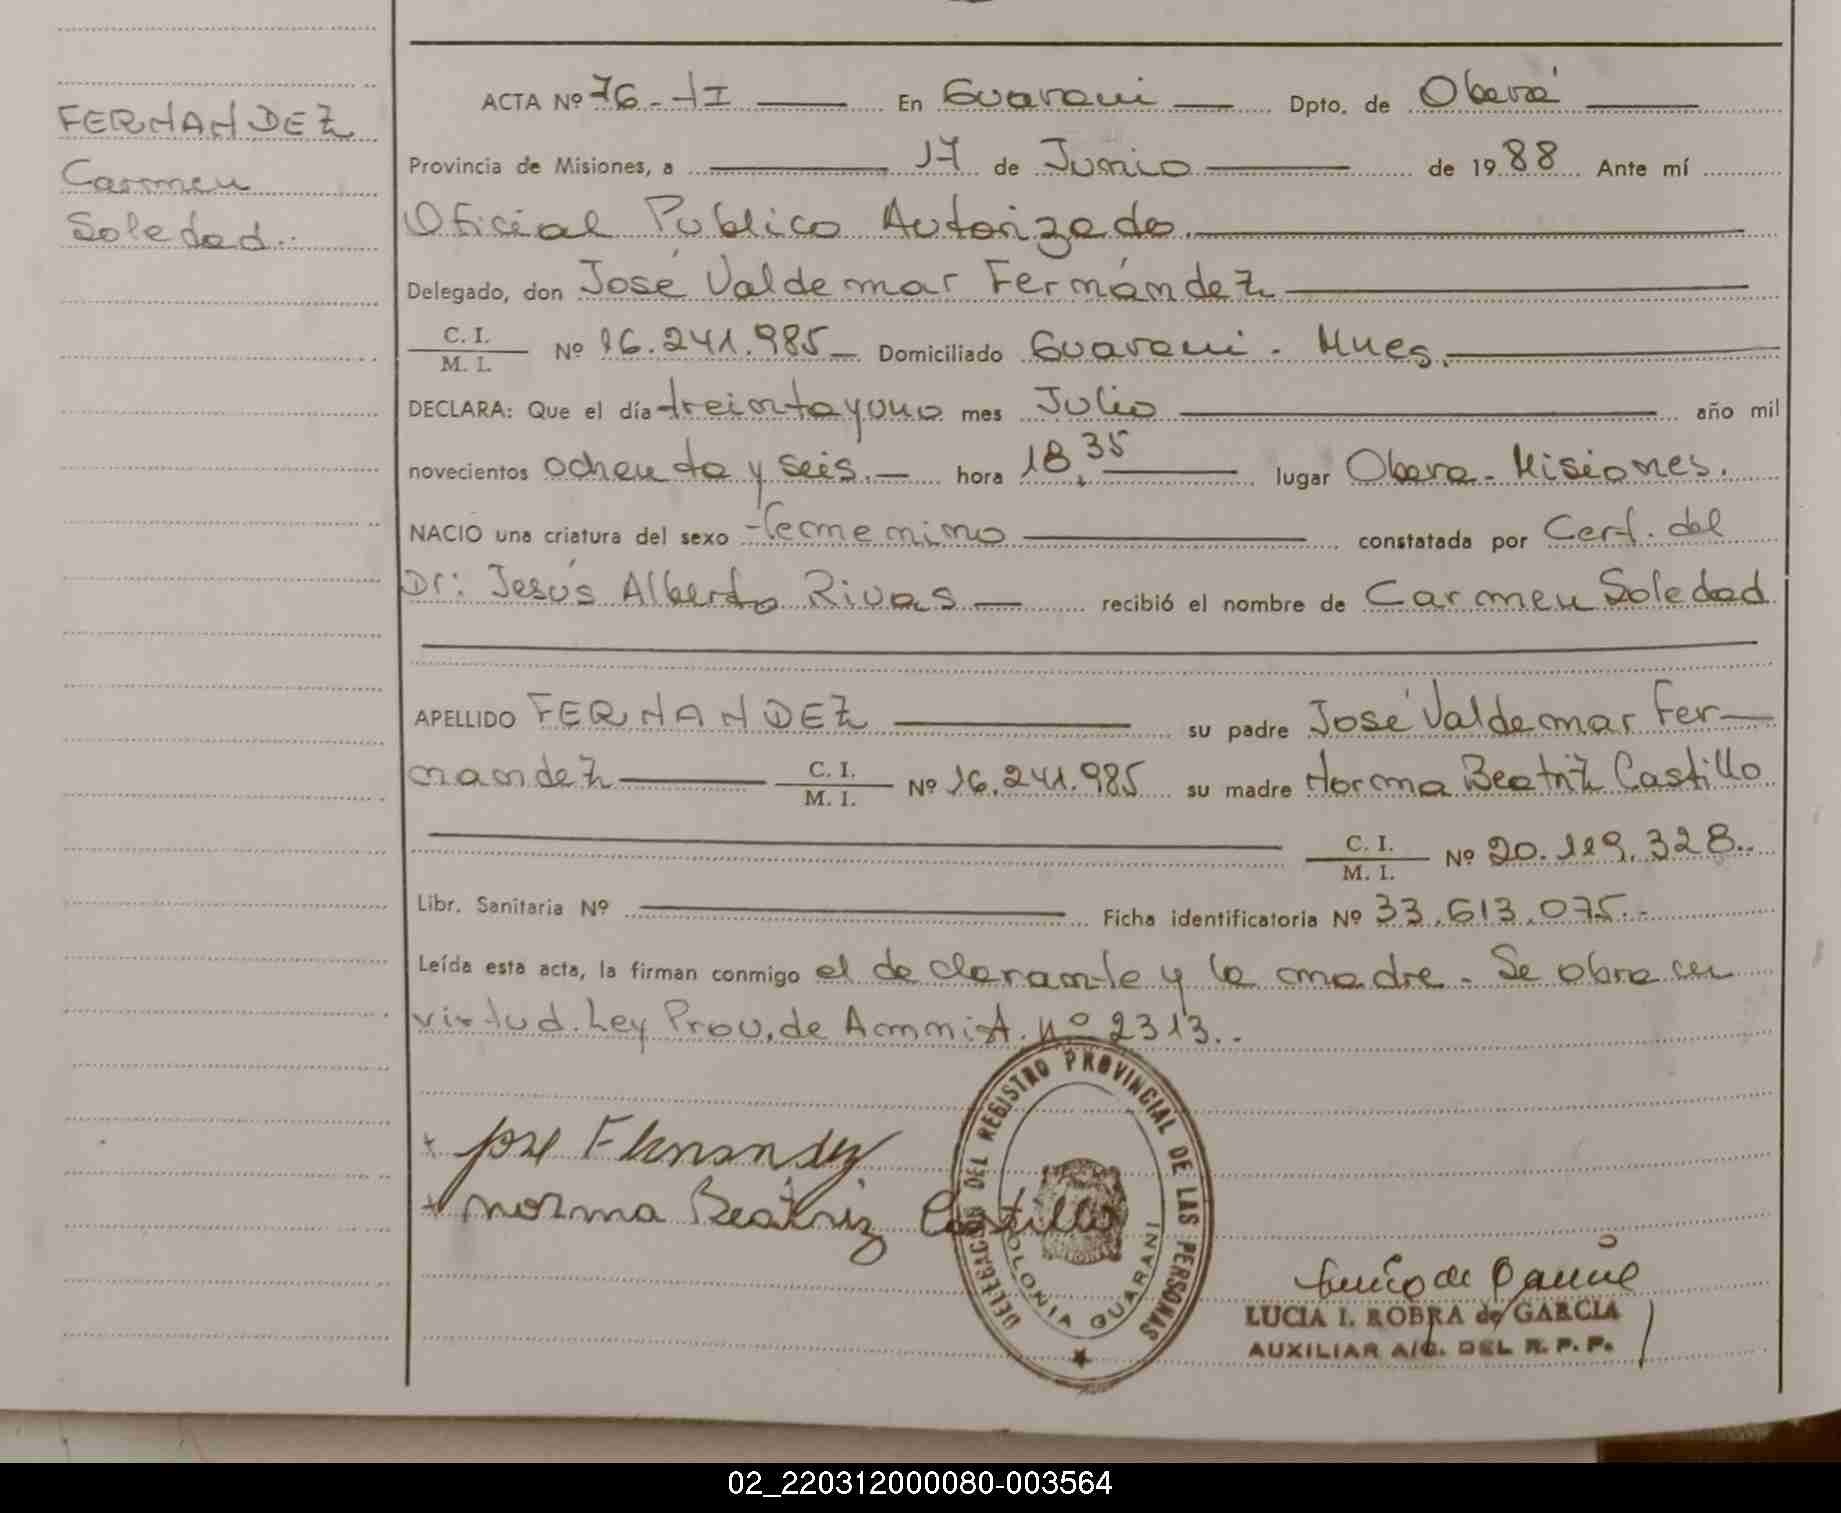 FERNANDEZ
Carmen
Soledad.
ACTA Nº 76 - tI En Guarani Dpto. de Oberá
Provincia de Misiones, a 17 de Junio de 1988 Ante mí
Oficial Publico Autorizado.
Delegado, don José Valdemar Fernández
C. I.
M. I. Nº 16.241.985 Domiciliado Guarani - Mnes.
DECLARA: Que el día treinta y uno mes Julio año mil
novecientos ochenta y seis. hora 18,35 lugar Obera - Misiones.
NACIO una criatura del sexo femenino constatada por Cert. del
Dr: Jesús Alberto Rivas recibió el nombre de Carmen Soledad
APELLIDO FERNANDEZ su padre José Valdemar Fer-
nandez C. I. M. I. Nº 16.241.985 su madre Norma Beatriz Castillo
C. I. M. I. Nº 20.119.328..
Libr. Sanitaria Nº Ficha identificatoria Nº 33.613.075.-
Leída esta acta, la firman conmigo el declarante y la madre - Se obra en
virtud. Ley Prov. de Amnist. Nº 2313..
Jose Fernandez
Norma Beatriz Castillo
DELEGACION DEL REGISTRO PROVINCIAL DE LAS PERSONAS
COLONIA GUARANI
LUCIA I. ROBRA de GARCIA
AUXILIAR A/C. DEL R. P. P.
02_220312000080-003564